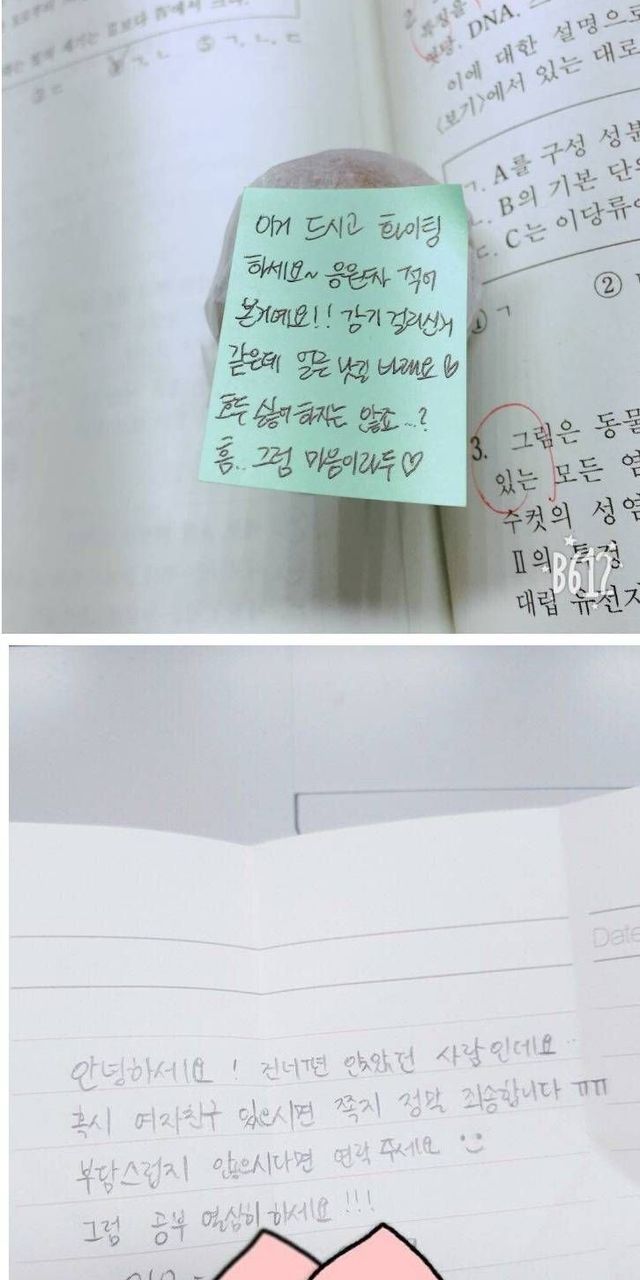 ㄱ, ㄴ, ㄷ
DNA.
이에 대한 설명으로
<보기>에서 있는 대로
ㄱ. A를 구성 성분
ㄴ. B의 기본 단위
ㄷ. C는 이당류이
① ㄱ
②
이거 드시고 화이팅
하세요~ 응원차 적어
본거예요!! 감기 걸리신거
같은데 얼른 낫길 바래요♡
호두 싫어하지는 않죠...?
흠.. 그럼 마음이라두♡
3. 그림은 동물
있는 모든 염
수컷의 성염
Ⅱ의 특정
대립 유전자
B612
Date
안녕하세요! 건너편 앉았던 사람인데요..
혹시 여자친구 있으시면 쪽지 정말 죄송합니다 ㅠㅠ
부담스럽지 않으시다면 연락주세요
그럼 공부 열심히 하세요!!!
010 -